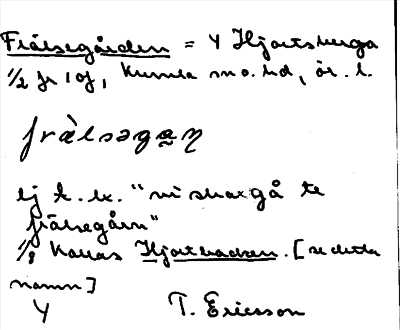 Frälsegården = 4 Hjortsberga
1/2 fr 1 of, Kumla sn o. hd, ör. l.
frälsegaη
ej t. ex. "vi ska gå te
frälsegårn"
1/8 kallas Hjortbacken. [se detta
namn]
4 T. Ericsson